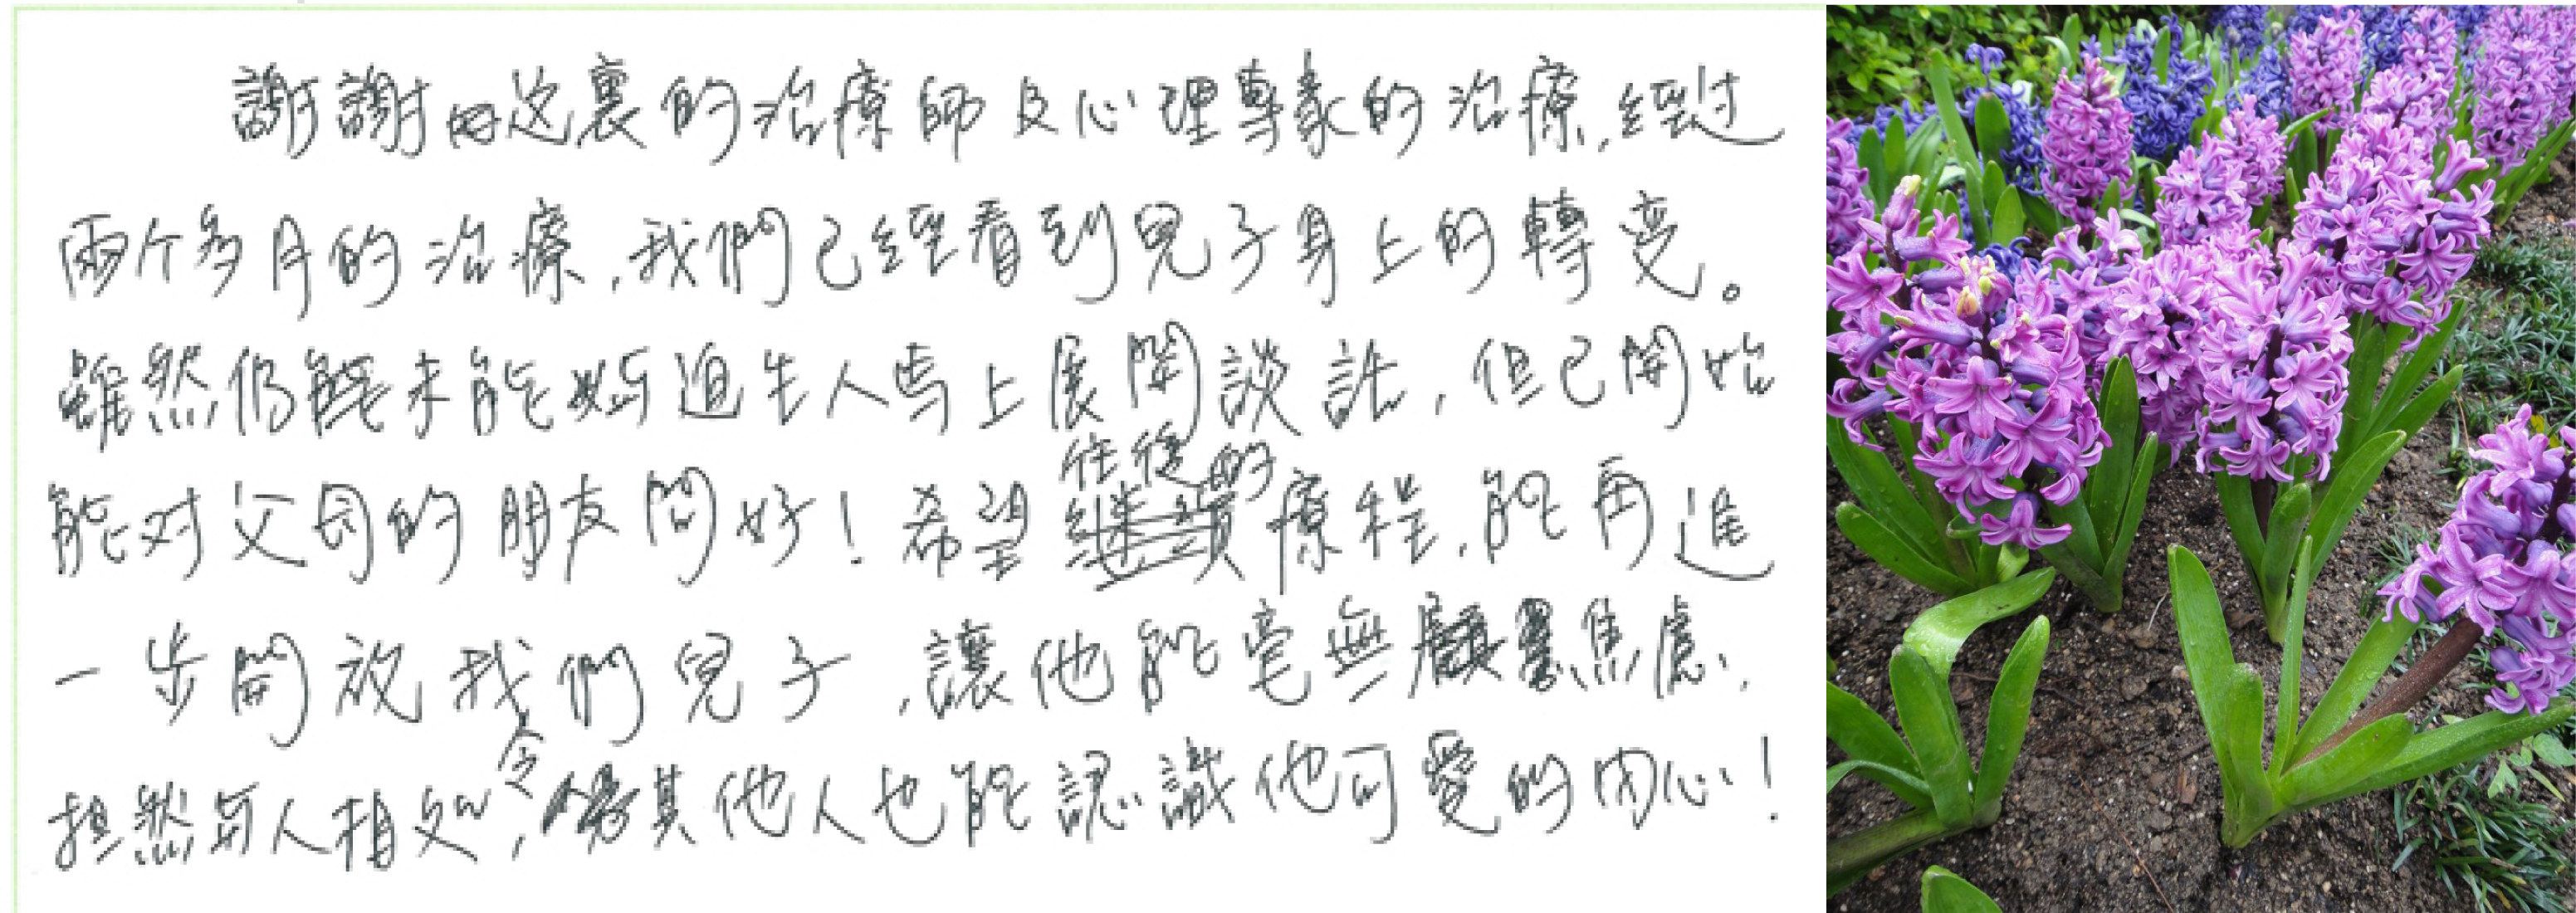 謝謝这裏的治療師及心理專家的治療,經过
兩个多月的治療,我們已經看到兒子身上的轉变。
雖然仍未能够迫生人馬上展開談話,但已開始
能对父母的朋友問好!希望往後的療程,能再進
一步開放我們兒子,讓他能毫無焦慮,
坦然与人相处,令其他人也能認識他可愛的内心!